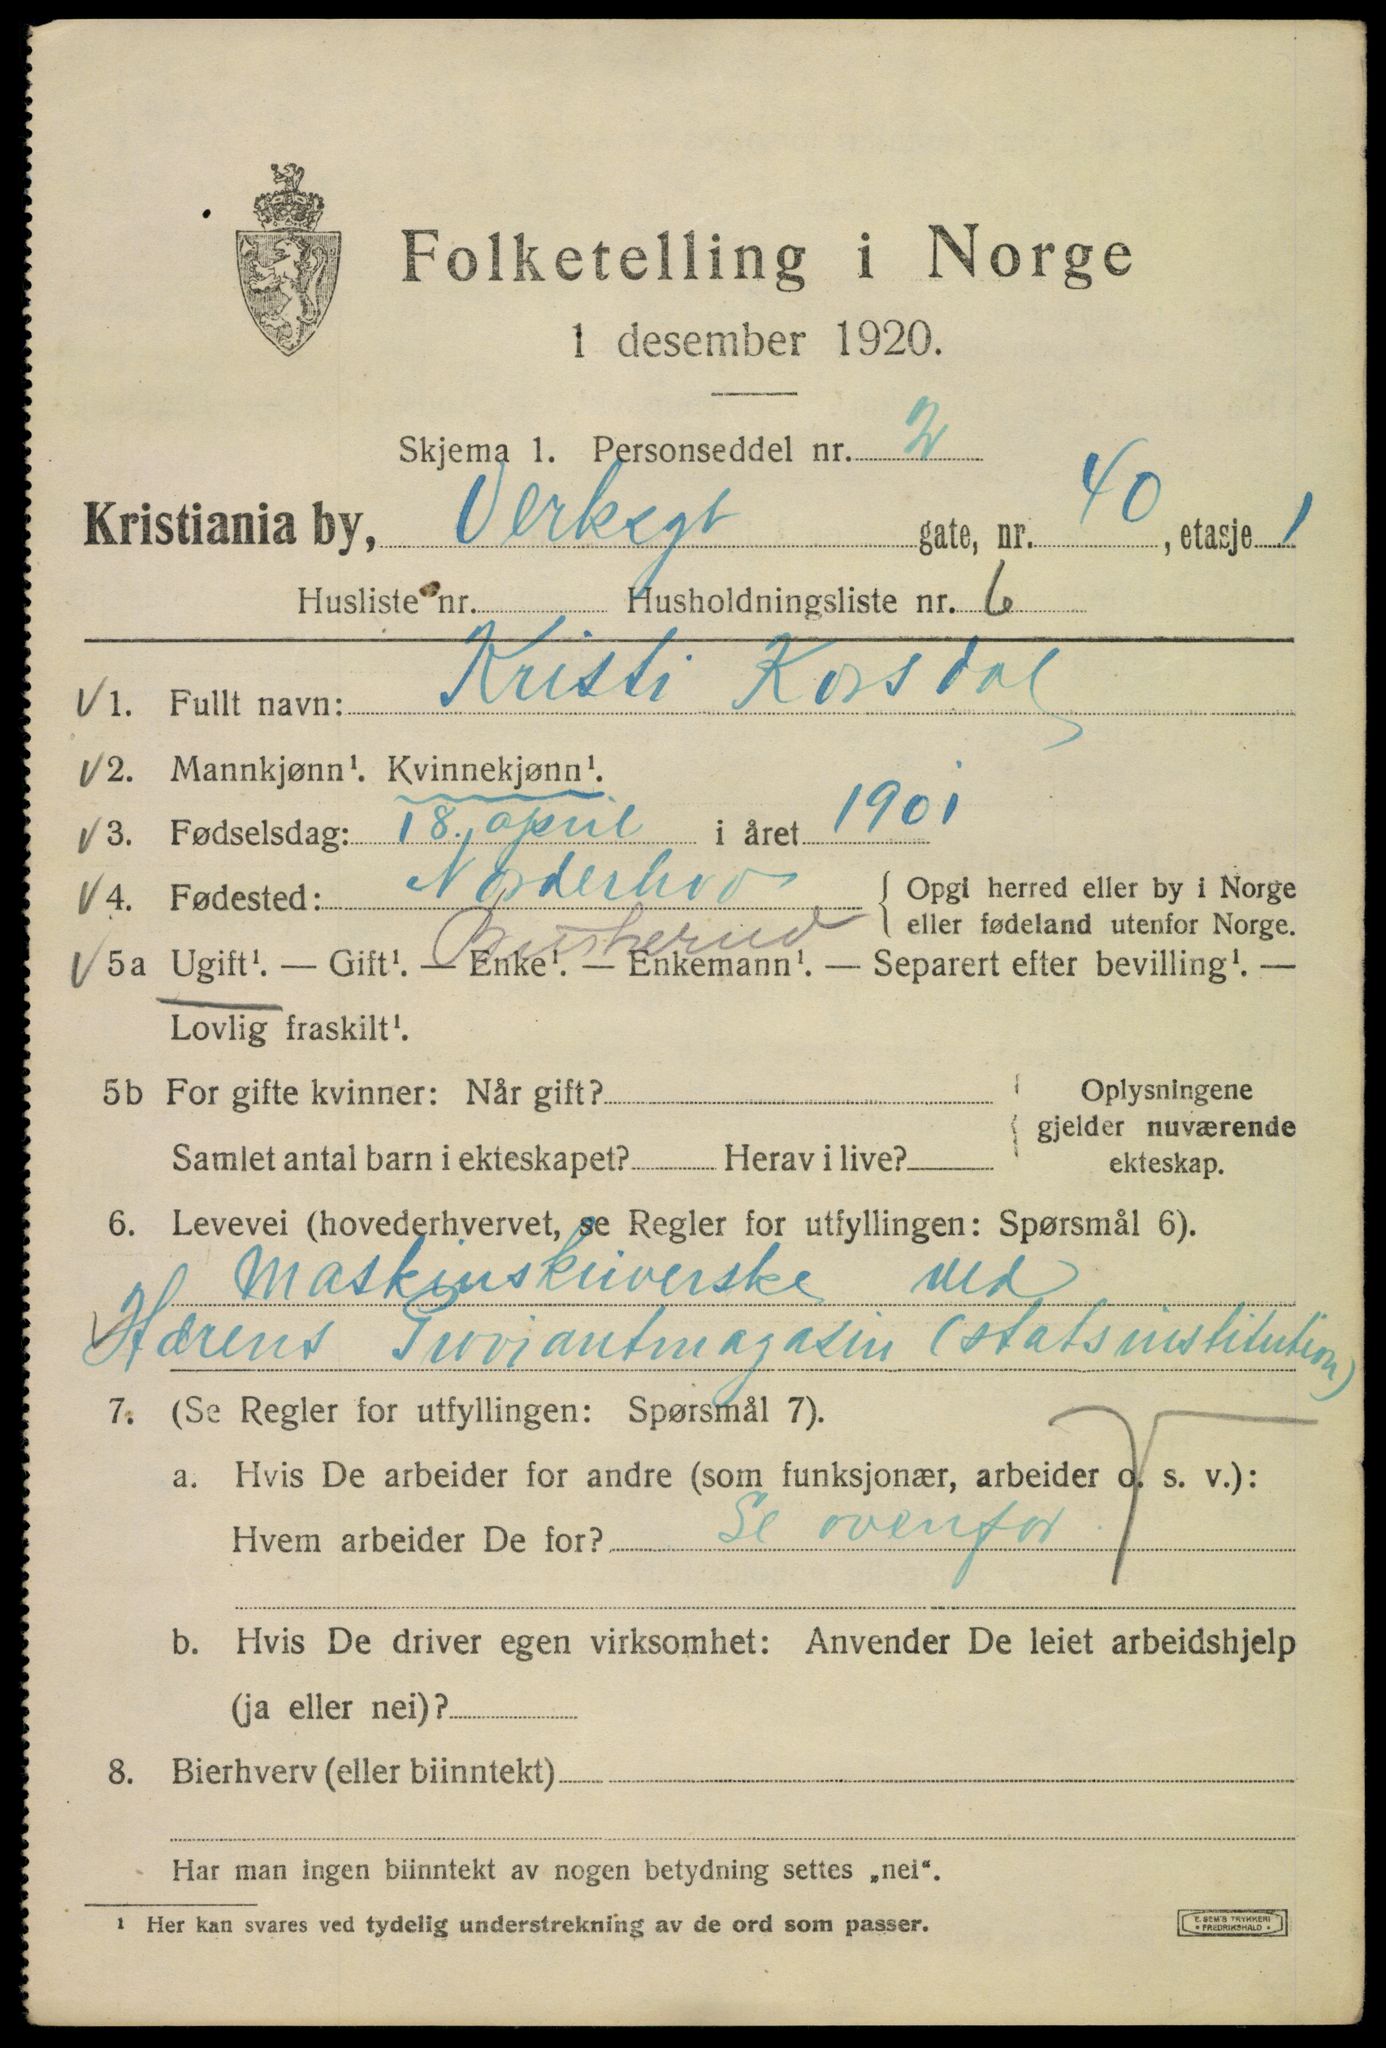 Folketelling i Norge
1 desember 1920.
Skjema 1. Personseddel nr. 2
Kristiania by, Verksgt gate, nr. 40, etasje 1
Husliste nr. Husholdningsliste nr. 6
V 1. Fullt navn: Kristi Korsdal
V 2. Mannkjønn¹. Kvinnekjønn¹.
V 3. Fødselsdag: 18. april i året 1901
V 4. Fødested: Norderhov { Opgi herred eller by i Norge
eller fødeland utenfor Norge.
Buskerud
V 5a Ugift¹. — Gift¹. — Enke¹. — Enkemann¹. — Separert efter bevilling¹. —
Lovlig fraskilt¹.
5b For gifte kvinner: Når gift? { Oplysningene
gjelder nuværende
Samlet antal barn i ekteskapet? Herav i live? ekteskap.
6. Levevei (hovederhvervet, se Regler for utfyllingen: Spørsmål 6).
Maskinskriverske ved
V Hærens Proviantmagasin (statsinstitution)
7. (Se Regler for utfyllingen: Spørsmål 7).
a. Hvis De arbeider for andre (som funksjonær, arbeider o. s. v.):
Hvem arbeider De for? Se ovenfor.
b. Hvis De driver egen virksomhet: Anvender De leiet arbeidshjelp
(ja eller nei)?
8. Bierhverv (eller biinntekt)
Har man ingen biinntekt av nogen betydning settes „nei“.
¹ Her kan svares ved tydelig understrekning av de ord som passer.
E. SEM'S TRYKKERI
• FREDRIKSHALD •